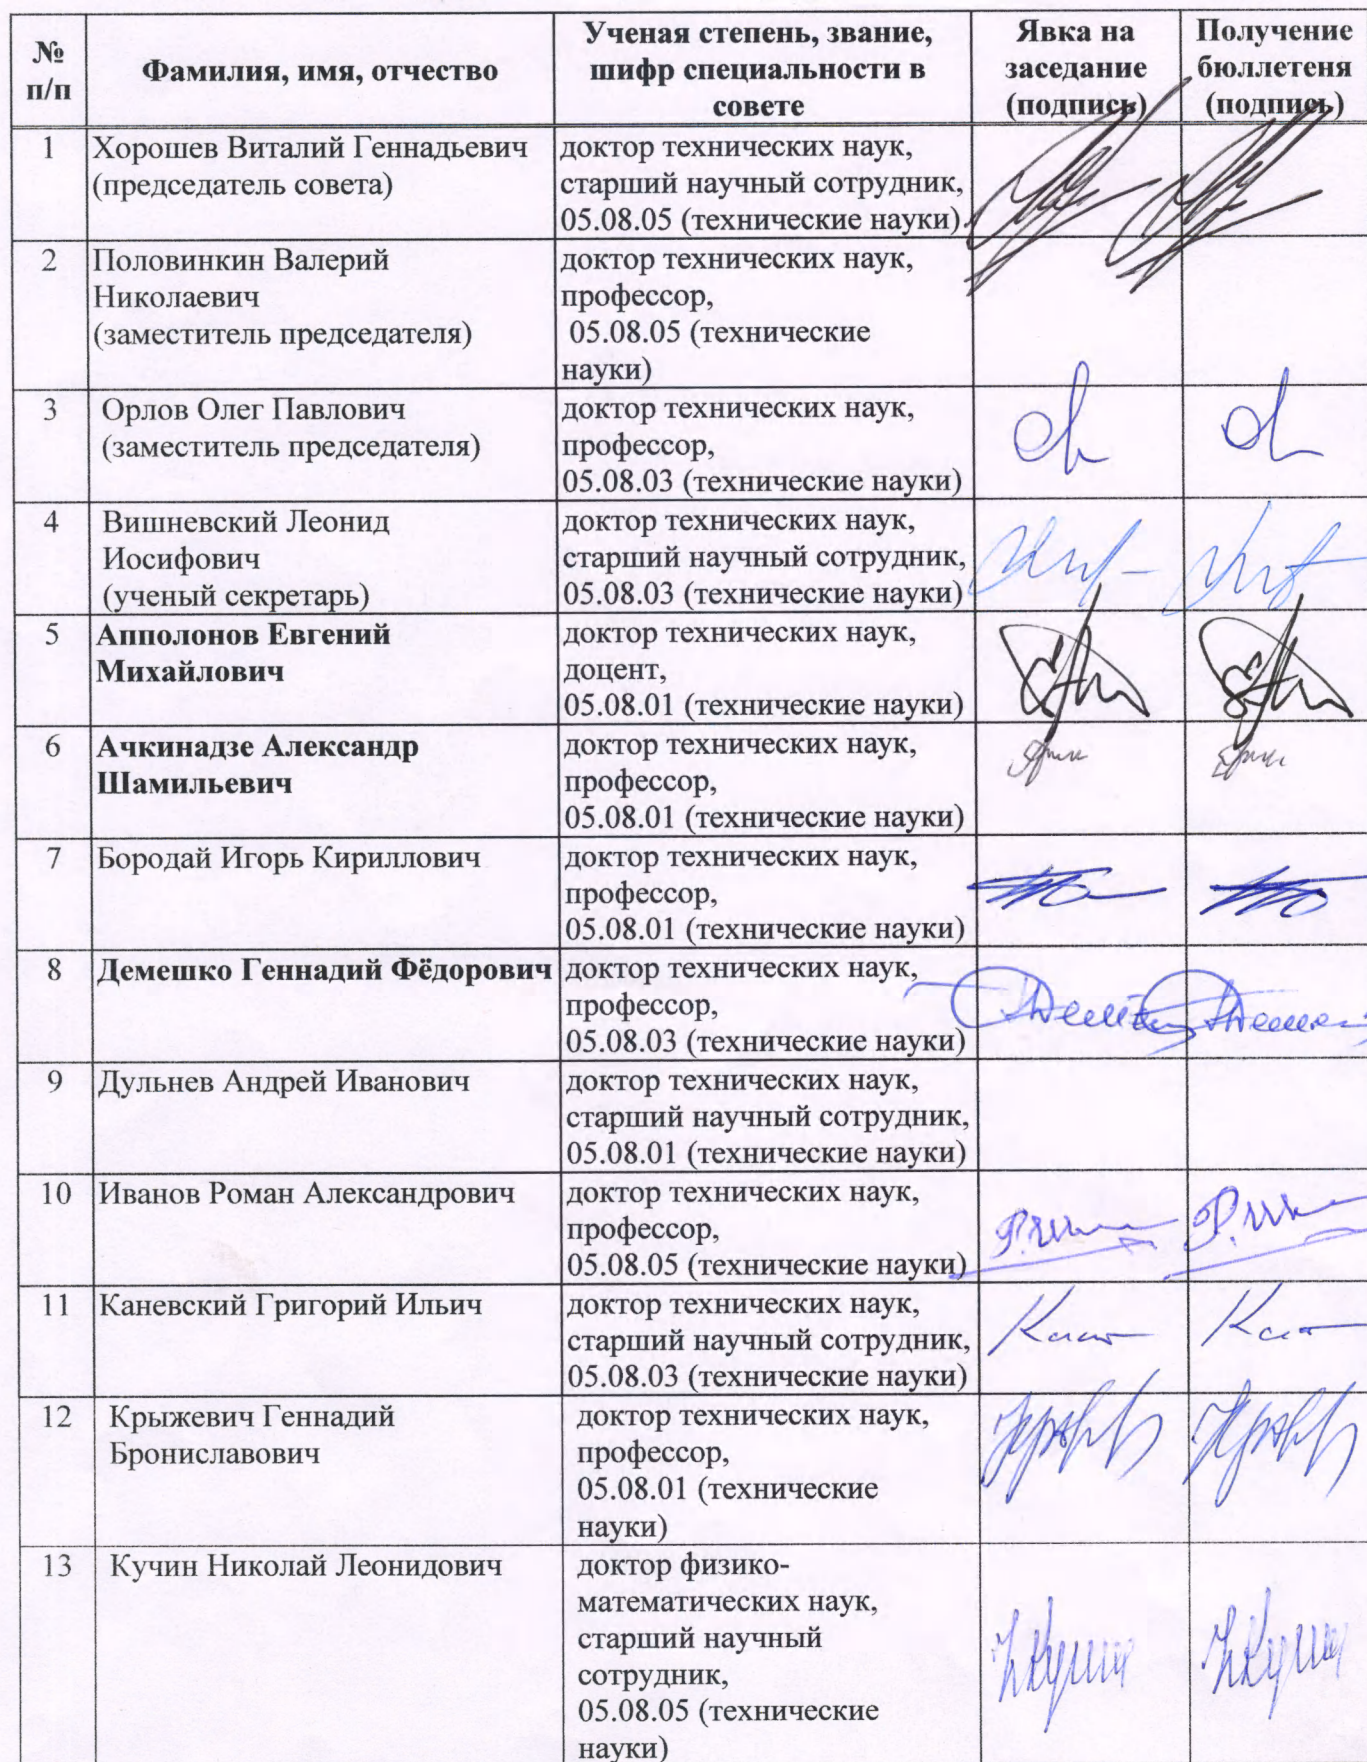 №
п/п
Фамилия, имя, отчество
Ученая степень, звание,
шифр специальности в
совете
Явка на
заседание
(подпись)
Получение
бюллетеня
(подпись)
1
Хорошев Виталий Геннадьевич
(председатель совета)
доктор технических наук,
старший научный сотрудник,
05.08.05 (технические науки)
2
Половинкин Валерий
Николаевич
(заместитель председателя)
доктор технических наук,
профессор,
05.08.05 (технические
науки)
3
Орлов Олег Павлович
(заместитель председателя)
доктор технических наук,
профессор,
05.08.03 (технические науки)
4
Вишневский Леонид
Иосифович
(ученый секретарь)
доктор технических наук,
старший научный сотрудник,
05.08.03 (технические науки)
5
Апполонов Евгений
Михайлович
доктор технических наук,
доцент,
05.08.01 (технические науки)
6
Ачкинадзе Александр
Шамильевич
доктор технических наук,
профессор,
05.08.01 (технические науки)
7
Бородай Игорь Кириллович
доктор технических наук,
профессор,
05.08.01 (технические науки)
8
Демешко Геннадий Фёдорович
доктор технических наук,
профессор,
05.08.03 (технические науки)
9
Дульнев Андрей Иванович
доктор технических наук,
старший научный сотрудник,
05.08.01 (технические науки)
10
Иванов Роман Александрович
доктор технических наук,
профессор,
05.08.05 (технические науки)
11
Каневский Григорий Ильич
доктор технических наук,
старший научный сотрудник,
05.08.03 (технические науки)
12
Крыжевич Геннадий
Брониславович
доктор технических наук,
профессор,
05.08.01 (технические
науки)
13
Кучин Николай Леонидович
доктор физико-
математических наук,
старший научный
сотрудник,
05.08.05 (технические
науки)